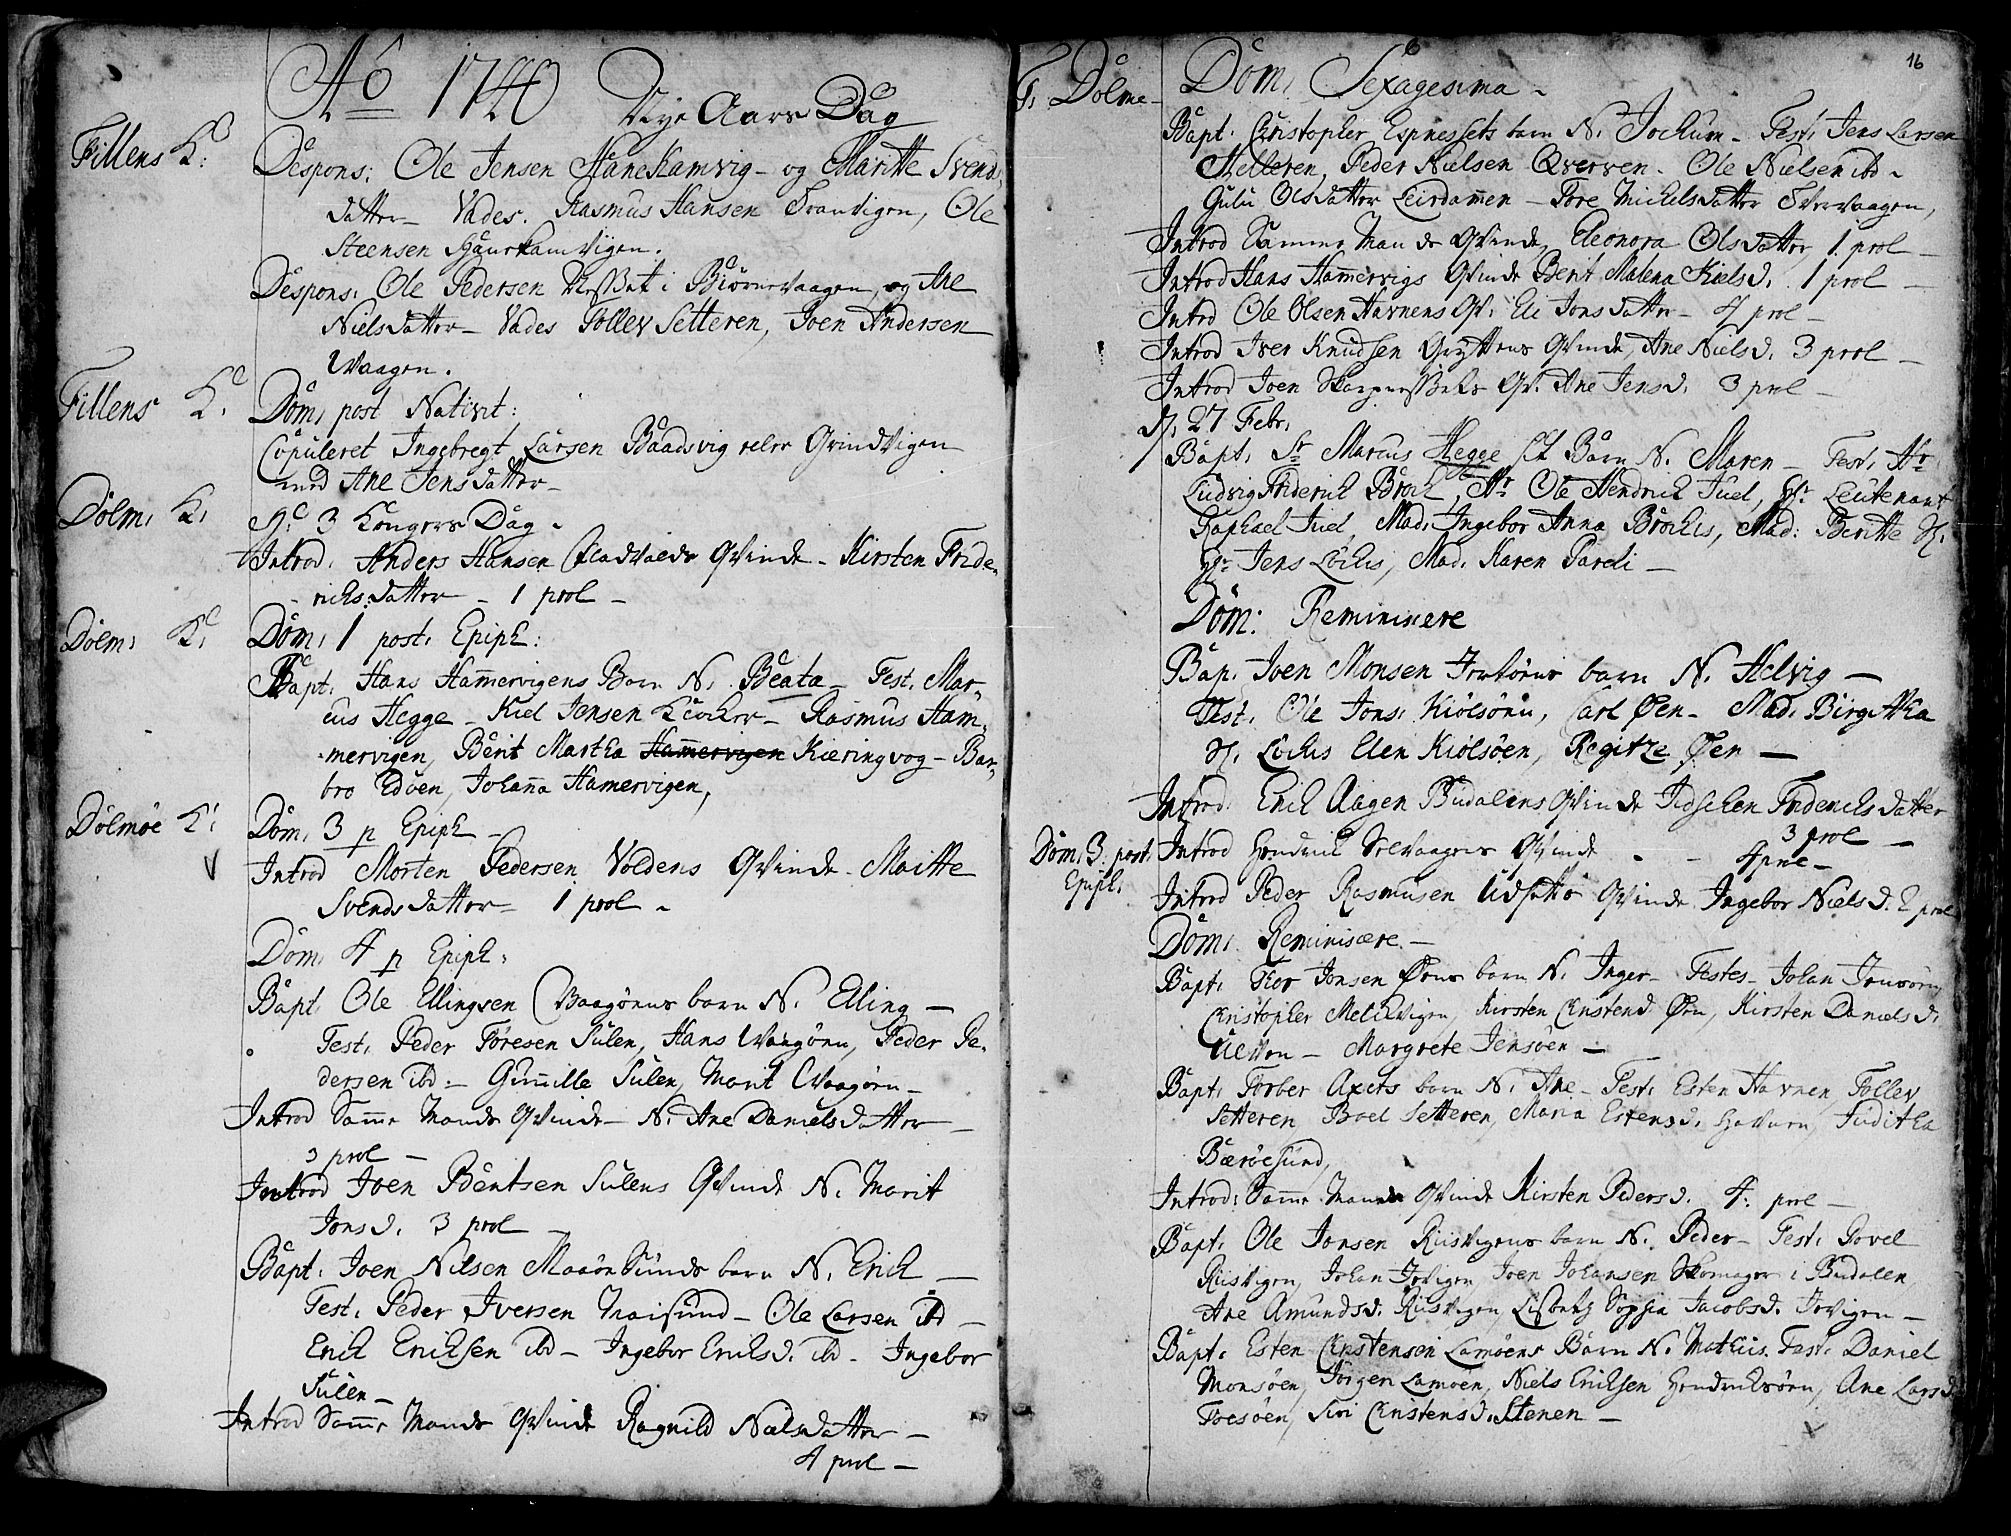 Aō 1740 Nye Aars Dag
Fillens K:
Despons: Ole Jensen Hanekamvig - og Maritte Svends
datter - Vades. Rasmus Hansen Tranvigen, Ole
Steensen
Despons: Ole Pedersen i Biörnevaagen, og Ane
Nielsdatter - Vades Tollev Setteren, Joen Andersen
Waagen.
Fillens K.
Dom, post Nativit:
Copuleret Ingebregt Larsen Baadsvig Grindvigen
med Ane Jensdatter -
Dolm, K.
3 Kongers Dag.
Introd. Anders Hansen Qvinde - Kirsten Fride-
richsdatter - 1 prol -
Dolm, K.
Dom, 1 post. Epiph:
Bapt. Hans Hamervigens Barn N. Beata - Test. Mar-
cus Hegge - Kiel Jensen Klocker - Rasmus Ham-
mervigen, Berit Martha Hamervigen Kieringvog - Bar-
bro Edöen, Johana Hamervigen,
Dolmöe K.
Dom, 3 p Epiph -
Introd Morten Pedersen Voldens Qvinde - Maritte
Svendsdatter - 1 prol -
Dom, 4 p Epiph.
Bapt. Ole Ellingsen Vaagöens barn N. Elling -
Test. Peder Töresen Sulen, Hans Vaagöen, Peder Pe-
dersen ibd: - Gunille Sulen, Marit Vaagöen -
Introd Same Mands Qvinde - N. Ane Danielsdatter -
3 prol -
Introd Joen Bentsen Sulens Qvinde N. Marit
Jonsd. 3 prol -
Bapt. Joen Nilsen Maaösunds barn N. Erich -
Test. Peder Iversen Maisund - Ole Larsen ibd -
Erich Erichsen ibd - Ingebor Erichsd. ibd - Ingebor
Sulen -
Introd Same Mands Qvinde Ragnild Nielsdatter -
4 prol -
16
Dolme -
Dom, Sexagesima -
Bapt. Christopher Espnessets barn N. Jochum - Test. Jens Larsen
Helleren, Peder Nielsen Qverven - Ole Nielsen ibd -
Gulu Olsdatter Leirdamen - Tore Michelsdatter
Introd Samme Mands Qvinde, Eleonora Olsdatter, 1 prol -
Introd Hans Hamervigs Qvinde Berit Malena Kielsd. 1 prol -
Introd Ole Olsen Havnens Qv. Eli Jonsdatter - 4 prol -
Introd Iver Knudsen Gryttens Qvinde, Ane Nielsd. 3 prol -
Introd Joen Qv. Ane Jensd. 3 prol -
D. 27 Febr.
Bapt. Sr Marcus Hegge Barn N. Maren - Test. Hr
Ludvig Friderich Broch, Hr Ole Hendrich Juel, Hr Leutenant
Raphael Juel, Mad. Ingebor Anna Brochs, Mad: Beritte
Hr Jens Löchs, Mad. Karen Pareli -
Dom: Reminiscere
Bap. Joen Monsen barn N. Helvig -
Test. Ole Jons. Kiölsöen, Carl Öen - Mad. Birgittha
Sl. Löchs Elen Kiölsöen, Regitze Öen -
Introd. Erich Aagen Budalens Qvinde Friderichsdatter
3 prol -
Dom, 3. post.
Epiph.
Introd Hendrich Qvinde - - 4 prol -
Introd Peder Rasmusen Qvinde Ingebor Nielsd. 2 prol
Dom, Reminiscere -
Bapt. Jonsen Öens barn N. Inger - Testes - Johan
Christopher Melchvigen, Kirsten Christensd Öen, Kirsten Danielsd.
- Margrete Jensöen -
Bapt. Torber Axets barn N. Ane - Test. Esten Havnen, Tollev
Setteren, Boel Setteren, Maria Estensd. Havnen, Juditha
Bæröesund,
Introd: Same Mands Qvinde Kirsten Pedersd. 4. prol -
Bapt. Ole Jonsen Risvigens barn N. Peder - Test. Povel
Risvigen, Johan Joen Johansen Skomager i Budalen
Ane Amundsd. Risvigen, Lisbeth Sophia Jacobsd.
Bapt. Esten Christensen Lamöens Barn N. Mathis. Test. Daniel
Monsöen, Jörgen Lamöen, Niels Erichsen Hendrichsöen, Ane Larsd
Siri Christensd. Stenen -